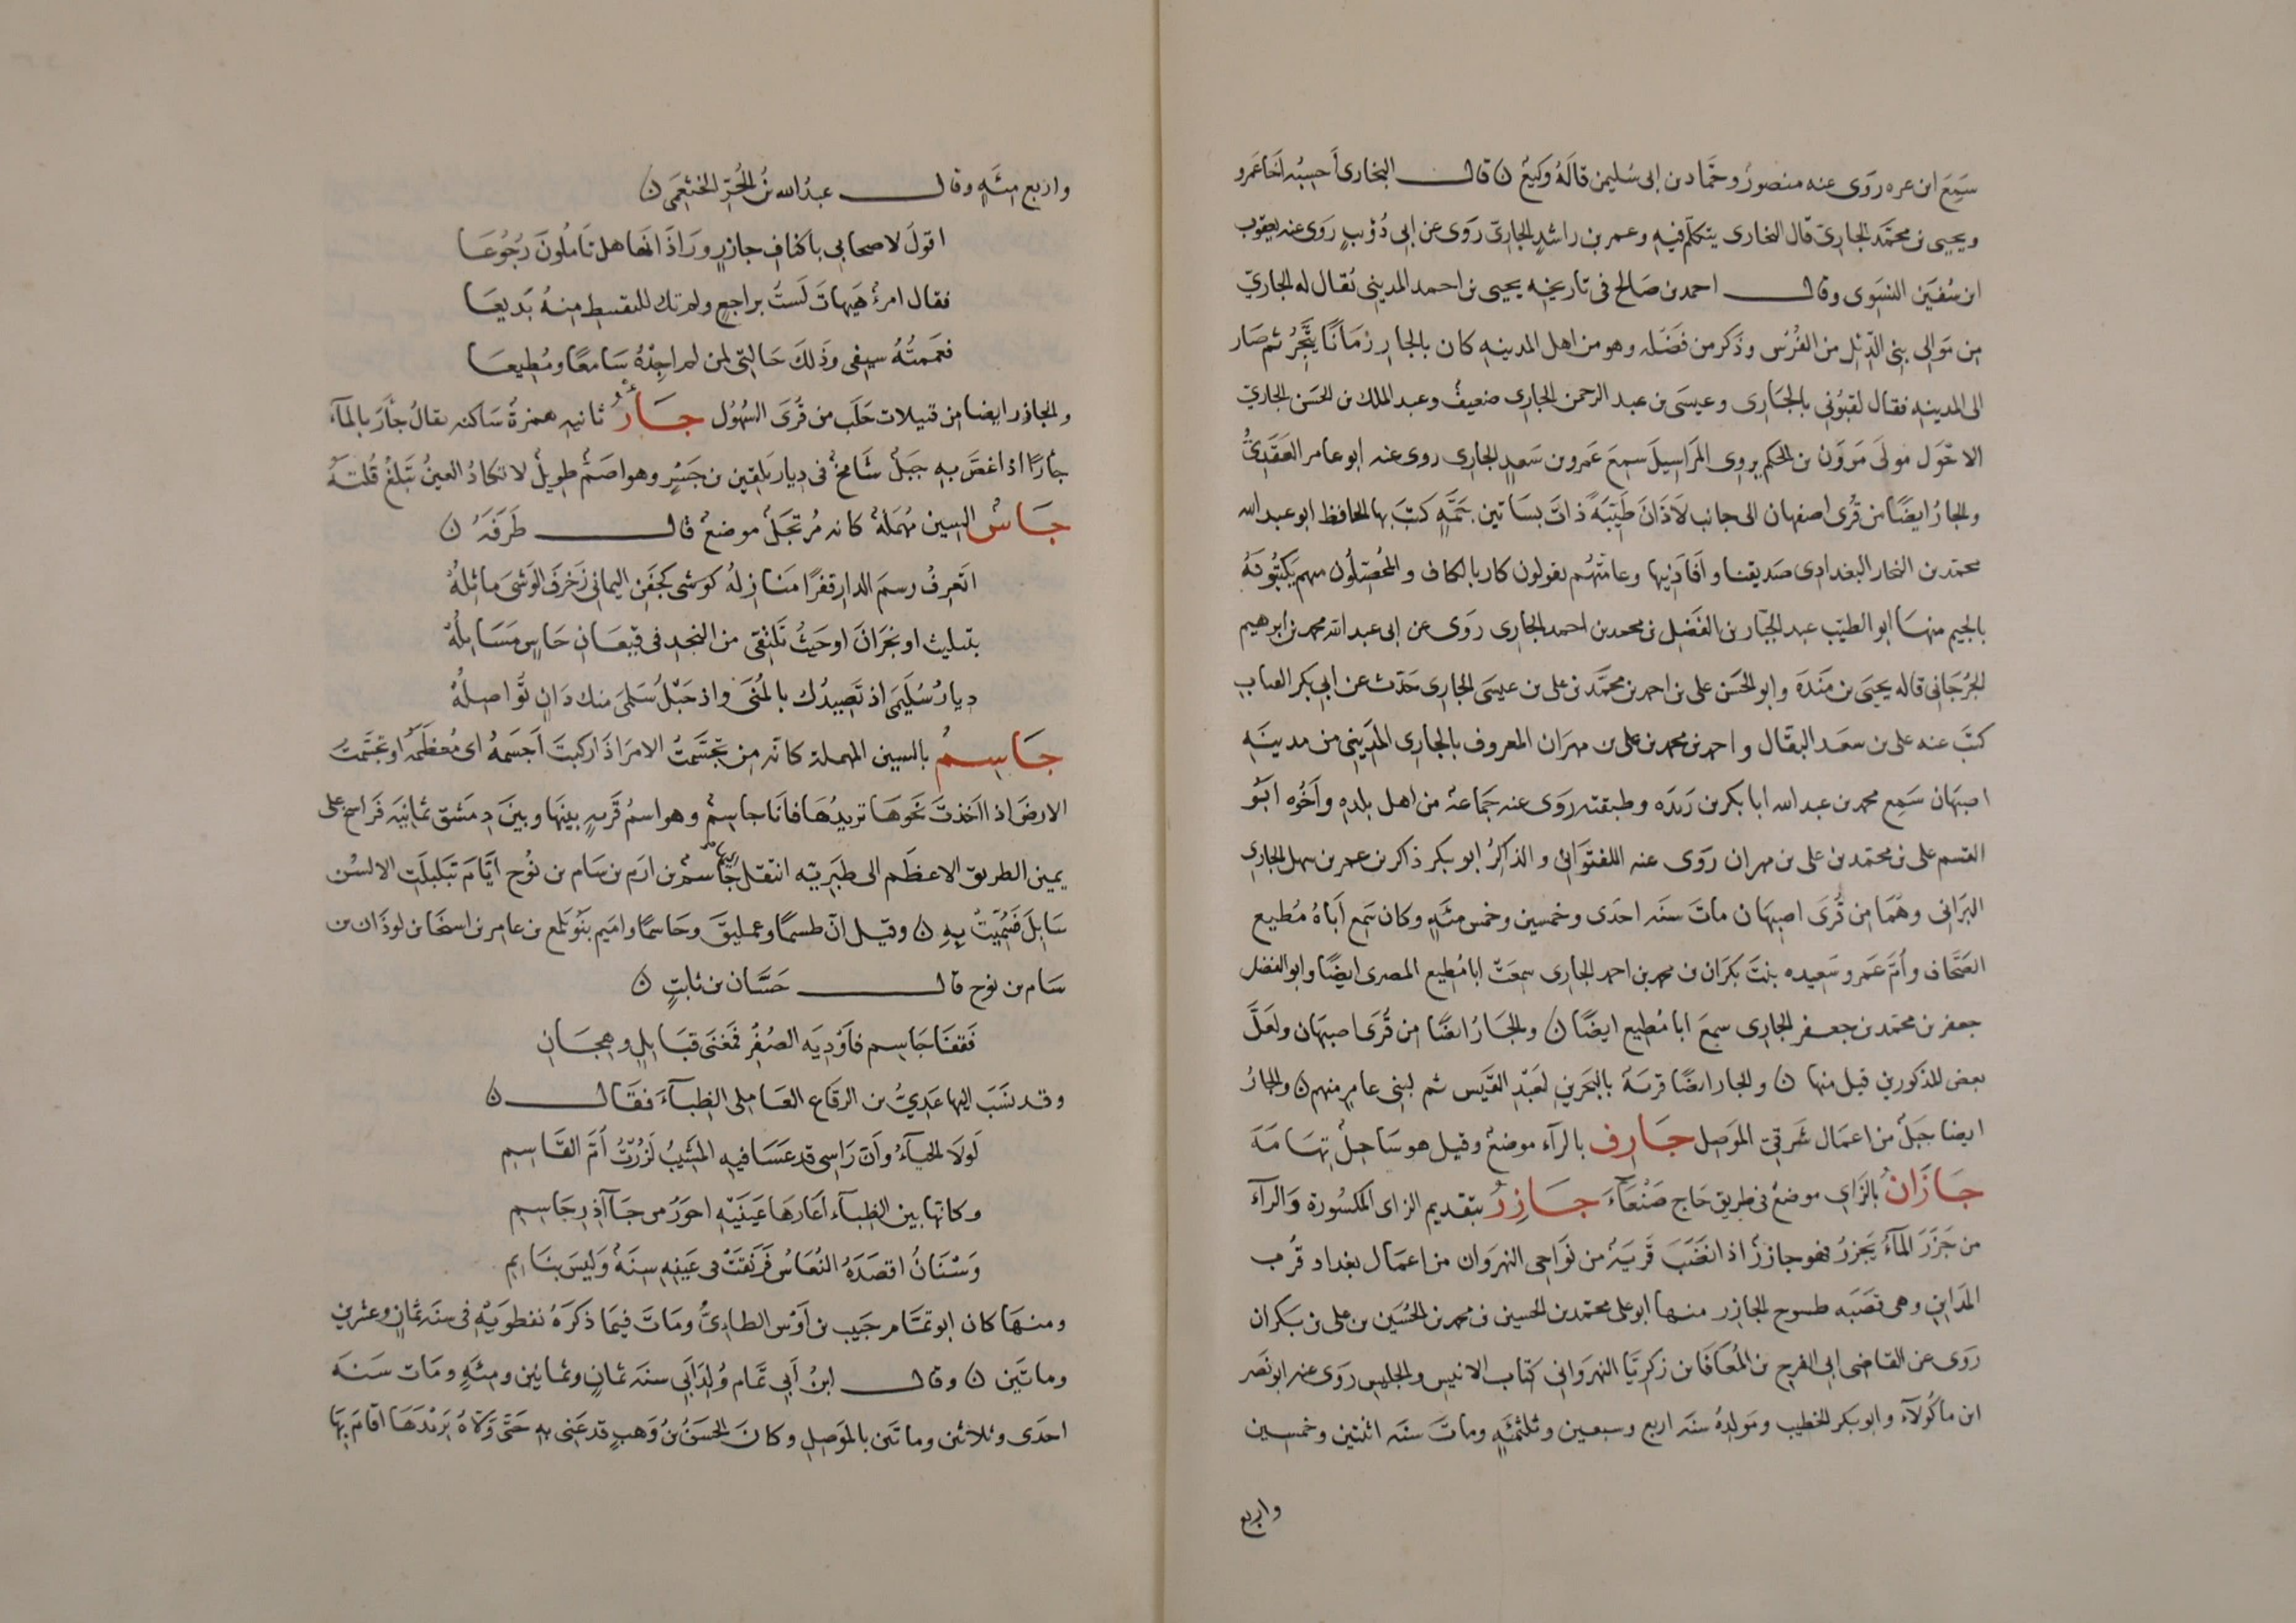 سَمِعَ ابن عمره روَى عنه منصورٌ وحَمّاد بن ابى سُليمن قالَهُ وكيعٌ ن قال البخارى أحسِبُه اخا عَمرو
ويحيى بن محمَّد الجارىّ قال البخارى يتكلّم فيه وعمر بن راشدٍ الجارىّ روَى عن ابى ذؤيبٍ روَى عنه يعقوب
ابن سُفيَن النسَوى وقال احمد بن صَالح فى تاريخه يحيى بن احمد المدينى يُقال له الجارىّ
مِن مَوالى بنى الدّئل من الفُرْس وذكر من فَضْله وهو من اهل المدينهِ كان بالجارِ زمَانًا يتَّجِرُ ثم صَار
الى المدينهِ فقال لقبُونى بالجَارى وعيسَى بن عبد الرحمن الجارى ضعيفٌ وعبد الملك بن الحسَن الجارىّ
الاحْوَل مولَى مَروَن بن الحكم يروى المَراسيلَ سمِعَ عَمرو بن سَعدٍ الجارى روى عنه ابو عامر العَقَدىُّ
والجارُ ايضًا من قُرى اصفهان الى جانب لاذَانَ طَيّبَةٌ ذاتُ بسَاتين جَمَّهٍ كتَبَ بها الحافظ ابو عبد الله
محمّد بن النجار البغدادى صَديقنا وافادَنيها وعامّتهُم يقولون كار بالكاف والمُحصّلُون منهم يَكتبُونهُ
بالجيم منهَا ابو الطيّب عبد الجبّار بن الفَضْل بن محمد بن احمد الجارى روَى عن ابى عبد الله محمد بن ابرهيم
الجُرجَانى قاله يحيَى بن مَندَهَ وابو الحسَن على بن احمد بن محمَّد بن على بن عيسَى الجارِى حَدّث عن ابى بكر القباب
كتبَ عنه على بن سعَد البقّال واحمد بن محمد بن على بن مهرَان المعروف بالجارى المَدِينى من مدينَهِ
اصبهَان سَمِع محمد بن عبد الله ابا بكر بن رَيذَه وطبقته روَى عنه جَماعة من اهل بلدهِ واخُوه ابُو
القسم على بن محمّد بن على بن مهران روَى عنه اللفتَوانى والذاكِرُ ابو بكر ذاكر بن عمر بن سهل الجارى
البرَانى وهُمَا من قُرَى اصبهَان ماتَ سنَه احدَى وخمسين وخمس مئَهٍ وكان سَمِع أباهُ مُطيع
الصَّحاف وأمّ عَمرو سَعيده بنتُ بكرَان بن محمد بن احمد الجارى سمعَت ابا مُطيع المصرى ايضًا وابو الفضل
جعفر بن محمّد بن جعفر الجارى سمعَ ابا مُطيع ايضًا ن والجَارُ ايضًا من قُرَى اصبهَان ولعَلَّ
بعض المذكورين قبل منها ن والجار ايضًا قريَة بالبَحرين لعَبْدِ القَيس ثم لبنى عامرٍ منهم ن والجارُ
ايضا جبَلٌ من اعمَال شَرقىّ المَوصِل جَارِف بالرآء موضعٌ وقيل هو سَاحِلُ تِهَامَةَ
جَازَانُ بالزَاى موضعٌ فى طريق حَاج صَنْعَآءَ جَازِرُ بتقديم الزاى المكسُورة وَالرآءِ
من جَزَرَ المآءُ يَجزِرُ فهو جازرٌ اذا نضَبَ قَريَهٌ من نَواحى النهرَوان من اعمَال بغداد قُربَ
المَداين وهى قصَبَه طسوج الجازِر منها ابو على محمّد بن الحسين بن محمد بن الحُسَين بن على بن بَكران
روَى عن القاضى ابى الفرج بن المُعَافَا بن زكريّا النهروَانى كتاب الانيس والجليس روَى عنه ابو نَصر
ابن ماكُولآء وابو بكر الخطيب ومَولدهُ سنَه اربع وسبعين وثلثمئَهٍ وماتَ سنَه اثنتين وخمسين
واربع
واربع مئَهٍ وقال عبدُ الله بنُ الحُرّ الخثعَمى ن
اقولُ لاصحابى باكنافِ جازرٍ ورَاذَانها هل تَامُلونَ رُجُوعَا
فقال امرءٌ هَيهاتَ لَستُ براجعٍ ولم تك للمقسِط مِنهُ بَديعَا
فعَممتُهُ سيفى وذَلكَ حَالتى لمن لم اجِدْهُ سَامعًا ومُطِيعَا
والجازر ايضا من قبيلات حَلَب من قُرَى السُهُول جَأرٌ ثانيه همزةٌ سَاكنه يقالُ جأرَ بالمآء
جأرًا اذا غصَّ به جَبَلٌ شَامخٌ فى ديار بَلقين بن جَسْرٍ وهو اصَمُّ طويلٌ لا تكادُ العينُ تَبلغُ قُلّتهُ
جَاسٌ السين مُهمَلةٌ كانه مُرتجَلٌ موضعٌ قال طَرَفَهُ ن
اتَعرِفُ رسمَ الدارِ قفرًا مَنازلُهُ كوشى كجَفنِ اليمانى زَخرَفَ الوَشىَ مائلُهْ
بتثليث او نجَرَانَ اوحَيثُ تَلتقى من النجدِ فى قيعَانِ جَاسٍ مَسَائِلُهْ
ديارُ سُلَيمَى اذ تَصِيدُك بالمُنَى واذ حَبْلُ سَلمَى منك دَانٍ تَواصِلُهْ
جَاسِمٌ بالسين المهملة كانّه مِن تجَسَّمتُ الامرَ اذَا ركبتَ اَجسَمهُ اى مُعظَمَهُ او تجسَّمتُ
الارضَ اذا اَخذتَ نحوَهَا تريدُهَا فانَا جاسِمٌ وهو اسمُ قَريهٍ بينهَا وبينَ دِمَشق ثمانِيَه فَراسخ على
يمين الطريق الاعظَم الى طَبَريّه انتقل جَاسمُ بن ارَم بن سَام بن نُوح ايَّامَ تبَلبلَتِ الالسُن
بَابِلَ فسُمِّيَتْ بِهِ ن وقيل انّ طسمًا وعمليقَ وجَاسمًا واميم بَنُو يَلمع بن عامر بن اسخَا بن لوذَان بن
سَام بن نوح قال حَسَّان بن ثابتٍ ن
فَقفَا جَاسِمٍ فاَودِيَه الصُفْرِ فمَغنَى قبَايلٍ وهجَانِ
وقد نسَبَ اليها عَدِىُّ بن الرقَاع العَاملى الظبآءَ فقَال ن
لَولَا الحيَآءُ وَانّ رَاسى قد عَسَا فيهِ المشَيبُ لزُرْتُ اُمّ القَاسِم
وكانها بين الظبآء اعَارهَا عَينَيْهِ احوَرُ من جَآذِرِ جَاسِمِ
وَسْنَانُ اقصَدَهُ النُعَاسُ فَرَنّقَتْ فى عَينهِ سِنَةٌ وَليسَ بنَايِم
ومنهَا كان ابو تمَّام حَبيب بن اَوْس الطاءِىُّ ومَاتَ فيمَا ذكَرَهُ نفطوَيْهِ فى سنَه ثمَانٍ وعشرين
وماتَين ن وقال ابنُ اَبى تمَّام وُلِدَ اَبى سنَه ثمانٍ وثمانِينَ ومئَهٍ ومَات سَنَه
احدَى وثلاثين وماتَين بالمَوصِلِ وكانَ الحسَنُ بنُ وَهبٍ قد عَنى بهِ حَتى وَلّاهُ بَريدَهَا اقامَ بِهَا